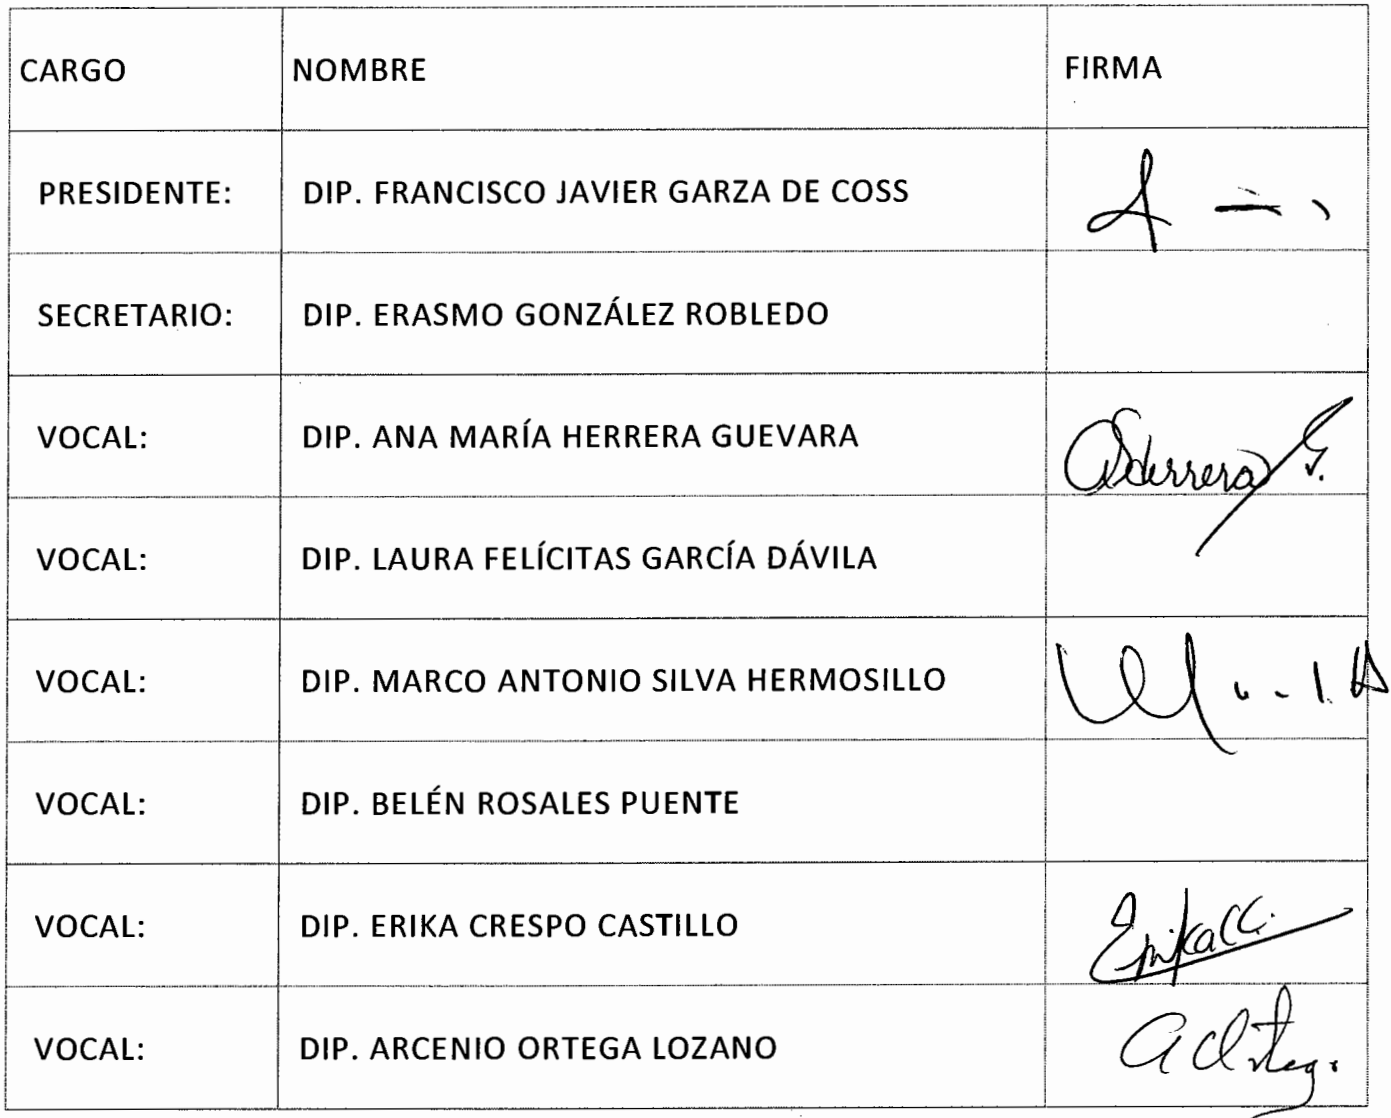 CARGO NOMBRE FIRMA
PRESIDENTE: DIP. FRANCISCO JAVIER GARZA DE COSS
SECRETARIO: DIP. ERASMO GONZÁLEZ ROBLEDO
VOCAL: DIP. ANA MARÍA HERRERA GUEVARA Herrera G.
VOCAL: DIP. LAURA FELÍCITAS GARCÍA DÁVILA
VOCAL: DIP. MARCO ANTONIO SILVA HERMOSILLO
VOCAL: DIP. BELÉN ROSALES PUENTE
VOCAL: DIP. ERIKA CRESPO CASTILLO Erika CC.
VOCAL: DIP. ARCENIO ORTEGA LOZANO